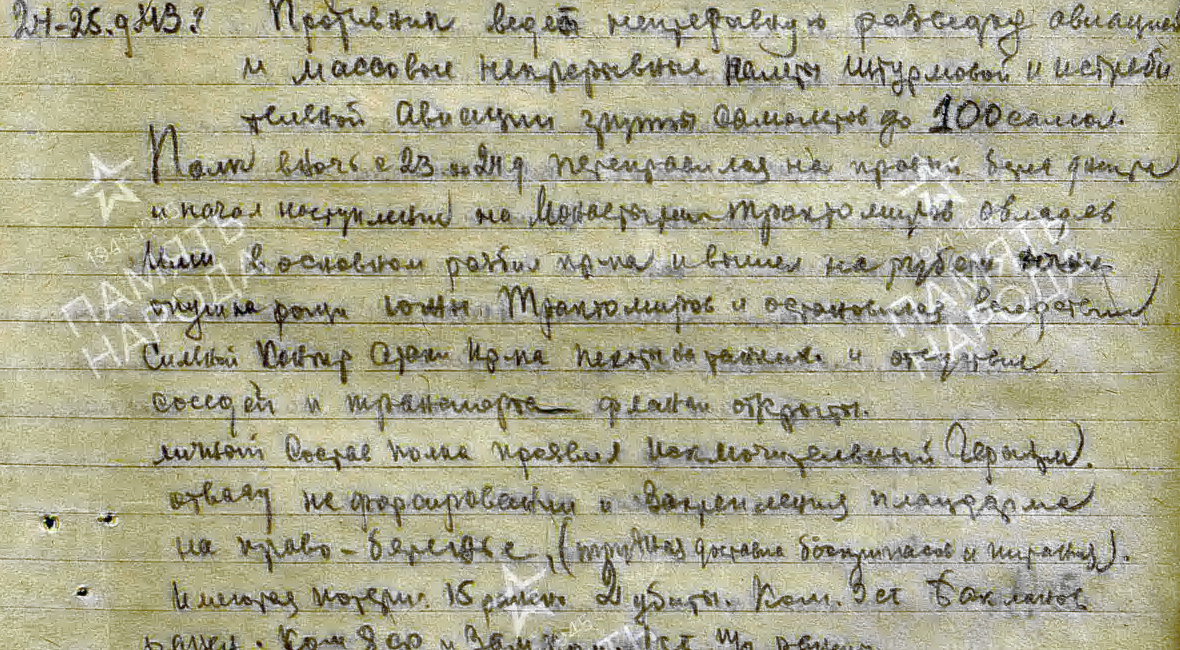 24-25.9.43г Противник ведет непрерывную разведку авиацией
и массовые непрерывные налеты штурмовой и истреби
тельной авиации группы самолетов до 100 самол.
Полк в ночь с 23 на 24 9 переправился на правый берег днепра
и начал наступление на Монастырик Трактомиров овладев
ими в основном разбил пр-ка и вышел на рубеж
опушка рощи южн Трактомиров и остановился
сильной контр атаки пр-ка пехоты и отсутствие
соседей и транспорта фланги открыты.
личный состав полка проявил исключительный Героизм.
отвагу на форсировании и закрепления плацдарма
на право-бережье, (трудная доставка боеприпасов и питания).
Имеются потери: 15 ранено 2 убиты. Ком. Бакланов
ранен. Ком и Зам
ПАМЯТЬ
НАРОДА
ПАМЯТЬ
НАРОДА